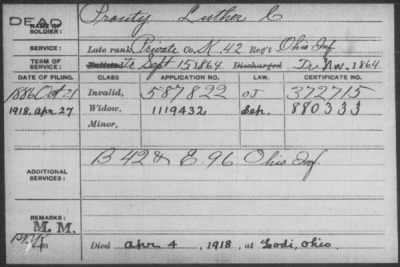 DEAD
NAME OF SOLDIER: Prouty Luther C
SERVICE: Late rank Private Co. K. 42 Reg't Ohio Inf
TERM OF SERVICE: Enlisted Te Sept 15 1864 Discharged Tr. Nov. 1864
DATE OF FILING. CLASS APPLICATION NO. LAW. CERTIFICATE NO.
1886 Oct 21 Invalid, 587822 372715
1918. Apr. 27 Widow, 1119432 Sep. 880333
Minor,
ADDITIONAL SERVICES: B 42 & E. 96 Ohio Inf.
REMARKS:
M. M.
Died Apr 4, 1918, at Lodi, Ohio.